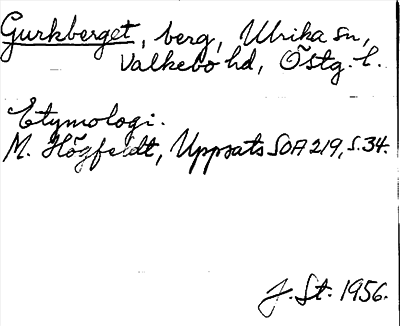 Gurkberget, berg, Ulrika sn,
Valkebo hd, Östg. l.
Etymologi.
M. Högfeldt, Uppsats SOA 219, s. 34.
J. St. 1956.